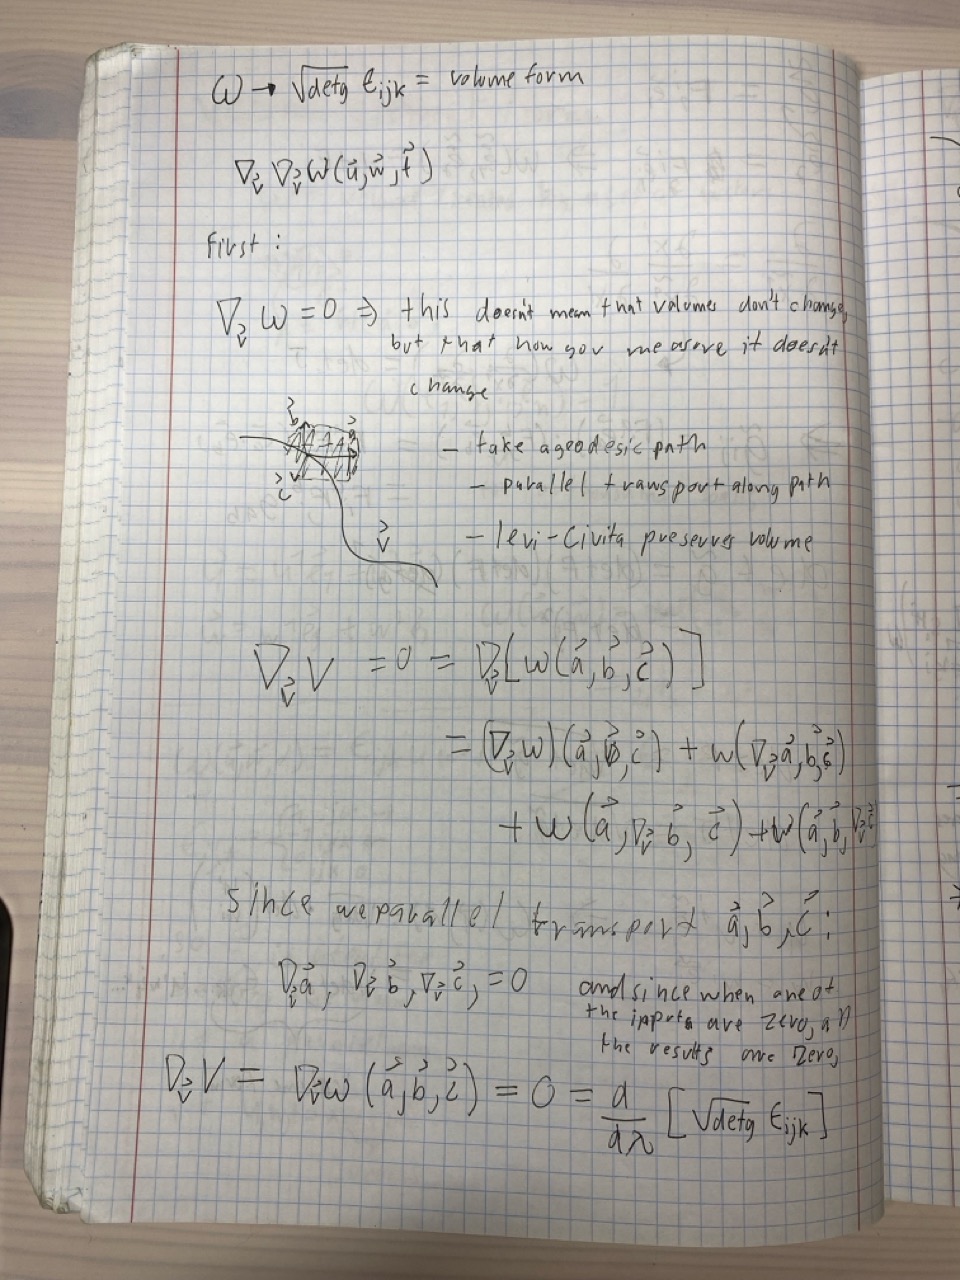 ω → √detg ϵijk = volume form
∇v⃗ ∇v⃗ ω(u⃗, w⃗, t⃗)
First :
∇v⃗ ω = 0 ⇒ this doesn't mean that volumes don't change,
but that how you measure it doesn't
change
b⃗ a⃗
c⃗
v⃗
- take a geodesic path
- parallel transport along path
- levi-Civita preserves volume
∇v⃗ V = 0 = ∇v⃗ [ω(a⃗, b⃗, c⃗)]
= (∇v⃗ ω)(a⃗, b⃗, c⃗) + ω(∇v⃗ a⃗, b⃗, c⃗)
+ ω(a⃗, ∇v⃗ b⃗, c⃗) + ω(a⃗, b⃗, ∇v⃗ c⃗)
since we parallel transport a⃗, b⃗, c⃗ :
∇v⃗ a⃗, ∇v⃗ b⃗, ∇v⃗ c⃗, = 0
and since when one of
the inputs are zero, all
the results are zero,
∇v⃗ V = ∇v⃗ ω (a⃗, b⃗, c⃗) = 0 = d/dλ [√detg ϵijk]